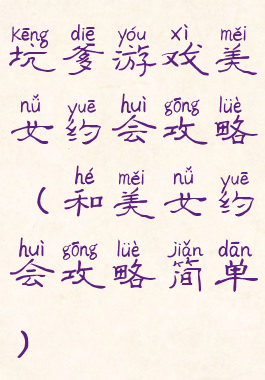 kēng diē yóu xì měi
坑爹游戏美
nǚ yuē huì gōng lüè
女约会攻略
hé měi nǚ yuē
（和美女约
huì gōng lüè jiǎn dān
会攻略简单
）